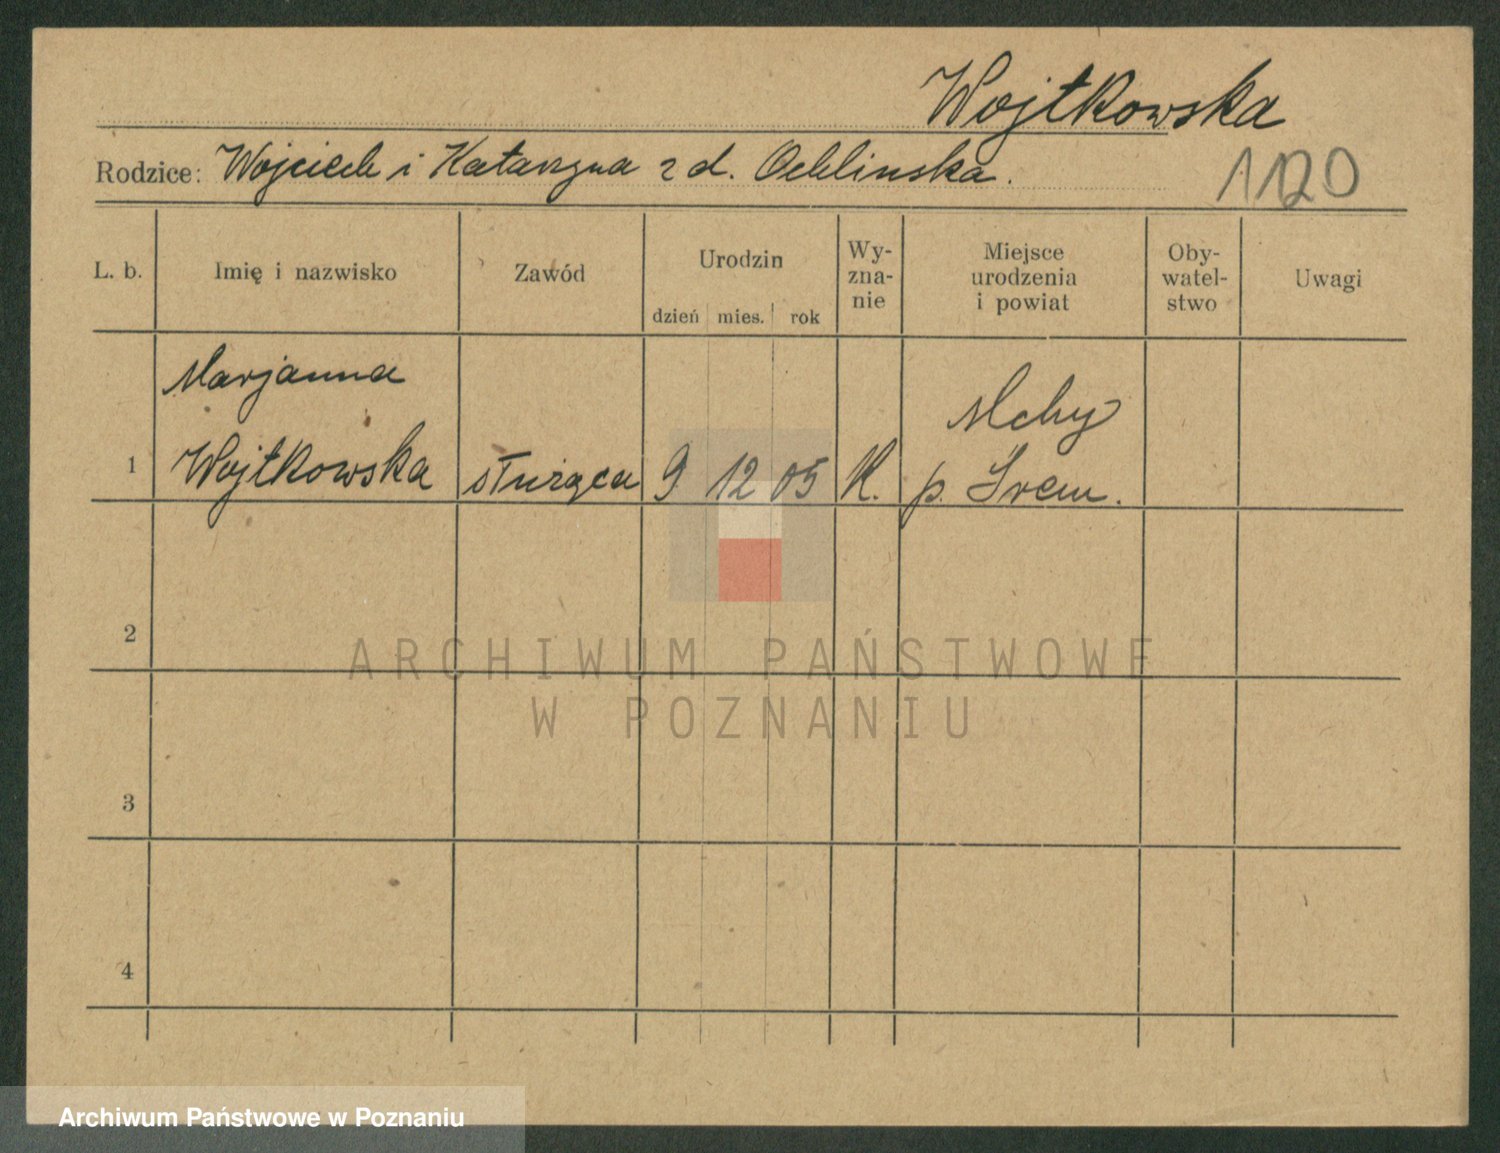 Wojtkowska
Rodzice: Wojciech i Katarzyna z d. Ochlinska.
1120
L. b.
Imię i nazwisko
Zawód
Urodzin
dzień mies. rok
Wy-
zna-
nie
Miejsce
urodzenia
i powiat
Oby-
watel-
stwo
Uwagi
Marjanna
Mchy
1 Wojtkowska służąca 9 12 05 K. p. Śrem.
2
ARCHIWUM PAŃSTWOWE
W POZNANIU
3
4
Archiwum Państwowe w Poznaniu